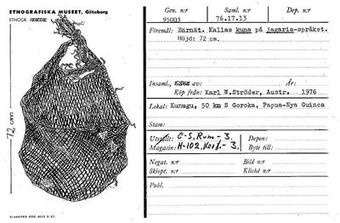 ETNOGRAFISKA MUSEET, Göteborg
ETNOGR.
72 cm
Gen. nr
95003
Saml. nr
76.17.13
Dep. nr
Föremål: Barnät. Kallas kuna på jagaria-språket.
Höjd: 72 cm.
Insaml.,
År:
Köp från: Karl W.Ströder, Austr. 1976
Lokal: Kuragu, 50 km S Goroka, Papua-Nya Guinea
Utställt: C-S, Rum - 3.
Magasin: H-102, Korr. - 3.
Depon:
Byte till:
Negat. nr
Skiopt. nr
Bild nr
Kliché nr
Publ.